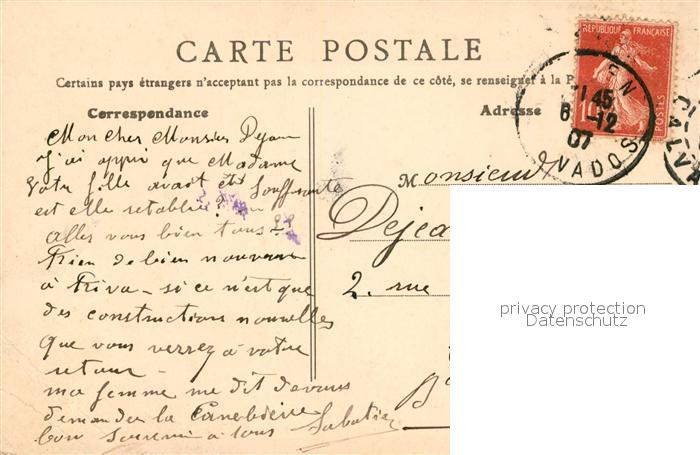 CARTE POSTALE
Certains pays étrangers n'acceptant pas la correspondance de ce côté, se renseigner à la P
Correspondance
Adresse
RÉPUBLIQUE FRANÇAISE
POSTES
10
EN
1 45
6 -12
07
VADOS
CALVA
Mon Cher Monsieur Dejean
J'ai appri que Madame
Votre fille avait été Souffrante
est elle retablie?
allez vous bien tous
Rien de bien nouveau
à Riva - si ce n'est que
des constructions nouvelles
que vous verrez à votre
retour -
ma femme me dit de vous
demander la Canebière
bon souvenir à tous Sabatier
Monsieur
Dejea
2. rue
B
privacy protection
Datenschutz